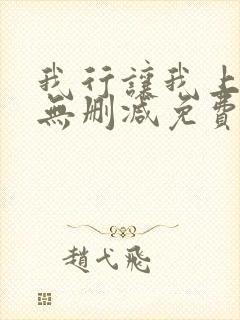 我行讓我上
無刪減免費
趙弋飛